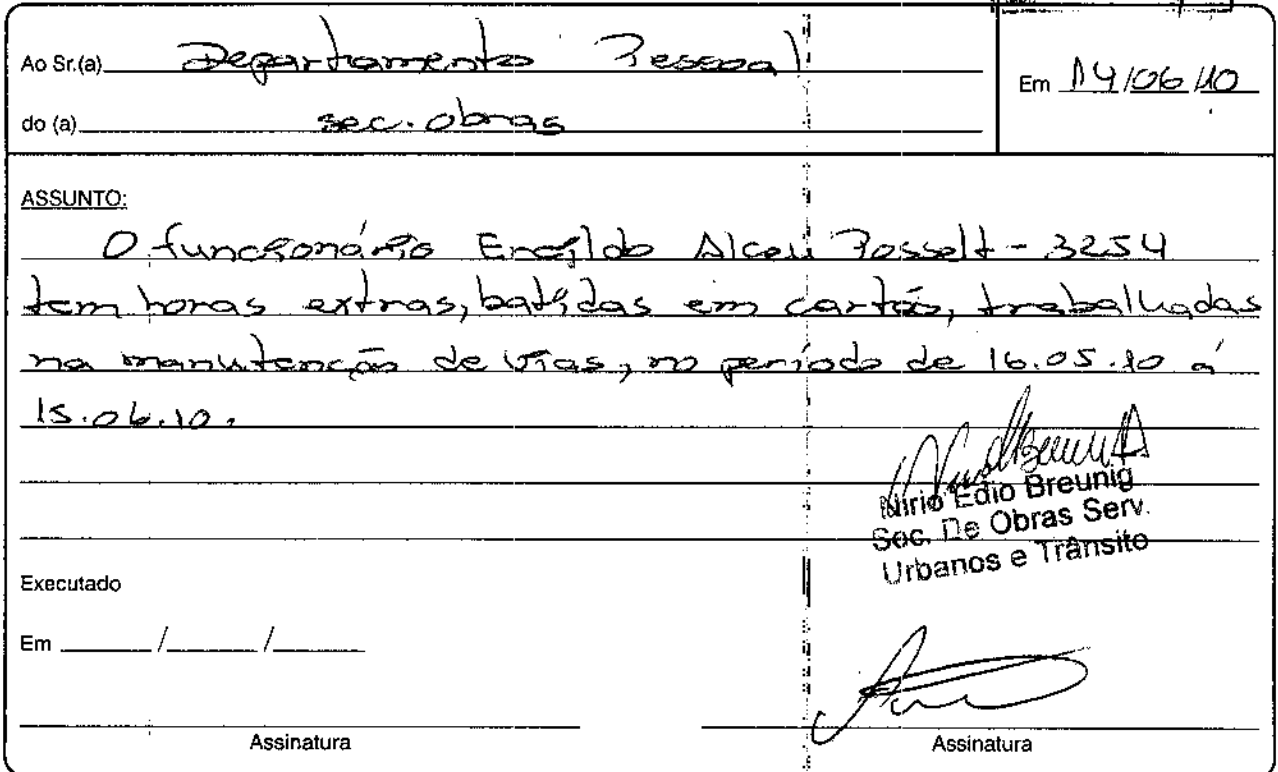 Ao Sr.(a) Departamento Pessoal
Em 14/06/10
do (a) sec. obras
ASSUNTO:
O funcionário Enegildo Alceu Posselt - 3254
tem horas extras, batidas em cartão, trabalhadas
na manutenção de vias, no período de 16.05.10 á
15.06.10.
Nirio Edio Breunig
Sec. De Obras Serv.
Urbanos e Trânsito
Executado
Em ____/____/____
Assinatura
Assinatura